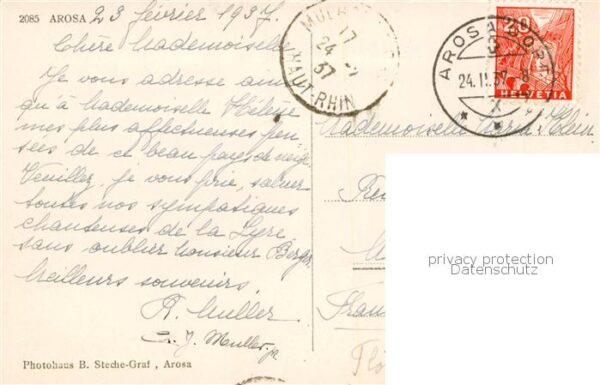 2085 AROSA 23 février 1937.
Chère Mademoiselle
Je vous adresse ainsi
qu'à Mademoiselle Hélène
mes plus affectueuses pen-
sées de ce beau pays de neige
Veuillez, je vous prie, saluer
toutes nos sympatiques
chanteuses de la Lyre
sans oublier Monsieur Berger.
Meilleurs souvenirs.
R. Muller
J. Muller
Photohaus B. Steche-Graf, Arosa
17
24
37
HAUT-RHIN
AROSA DORF
24.II.37
20
HELVETIA
Mademoiselle Maria Klein
privacy protection
Datenschutz